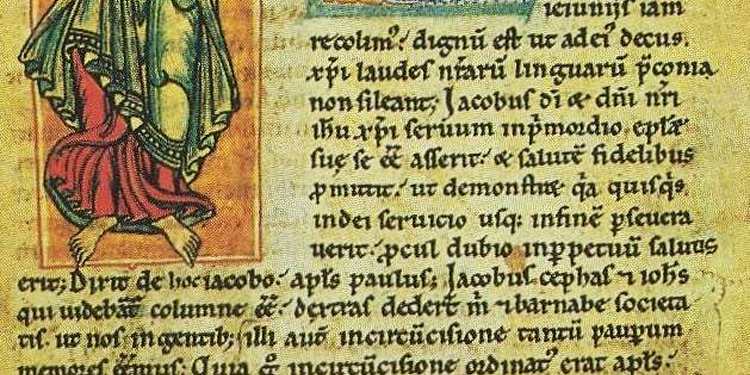 ieiunijs iam
recolimꝰ. dignū est ut adeiꝰ decus.
xp̄i laudes nr̄arū linguarū p̄conia
non sileant; Jacobus dī & dn̄i nr̄i
ih̄u xp̄i seruum inp̄mordio ep̄sꝉæ
suę se eē asserit. & salutē fidelibus
ꝓmittit. ut demonstret q̄a quisq̄s
indei seruicio usq; infinē ꝑseuera
uerit. ꝓcul dubio inꝑpetuū saluus
erit; Dixit de hoc iacobo. apl̄s paulus; Jacobus cephas ⁊ ioh̄s
qui uidebāt columne eē. dextras dedert̄ m̄ ⁊ barnabe societa
tis. ut nos ingentib; illi aut̄ incircūcisione tantū pauꝑum
memores eēmus; Quia g̊ incircūcisione ordinatꝰ erat apl̄s.